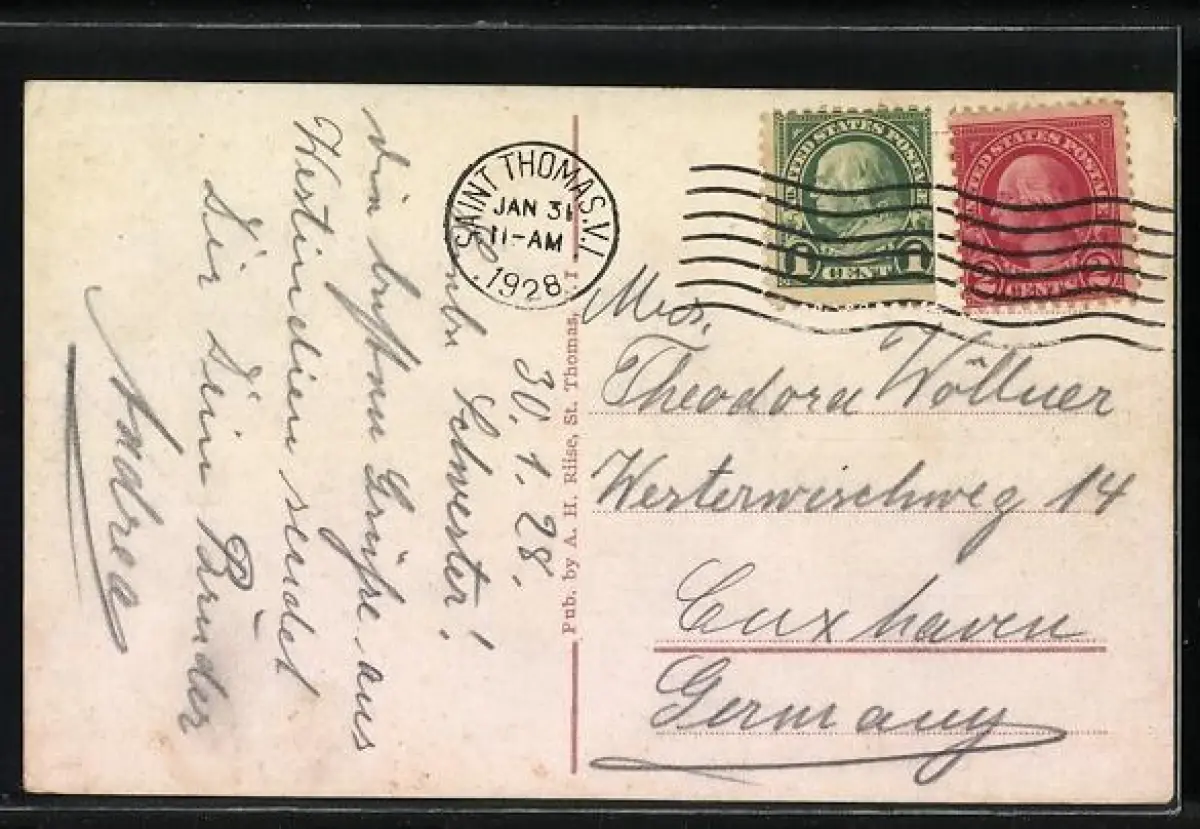 30. 1. 28.
Liebe Schwester!
Die besten Grüße aus
Westindien sendet
Dir Dein Bruder
Andrea
Pub. by A. H. Riise, St. Thomas,
SAINT THOMAS, V.I.
JAN 31
11-AM
1928
UNITED STATES POSTAGE
1 CENT 1
UNITED STATES POSTAGE
2 CENTS 2
Mrs.
Theodora Wöllner
Westerwischweg 14
Cuxhaven
Germany